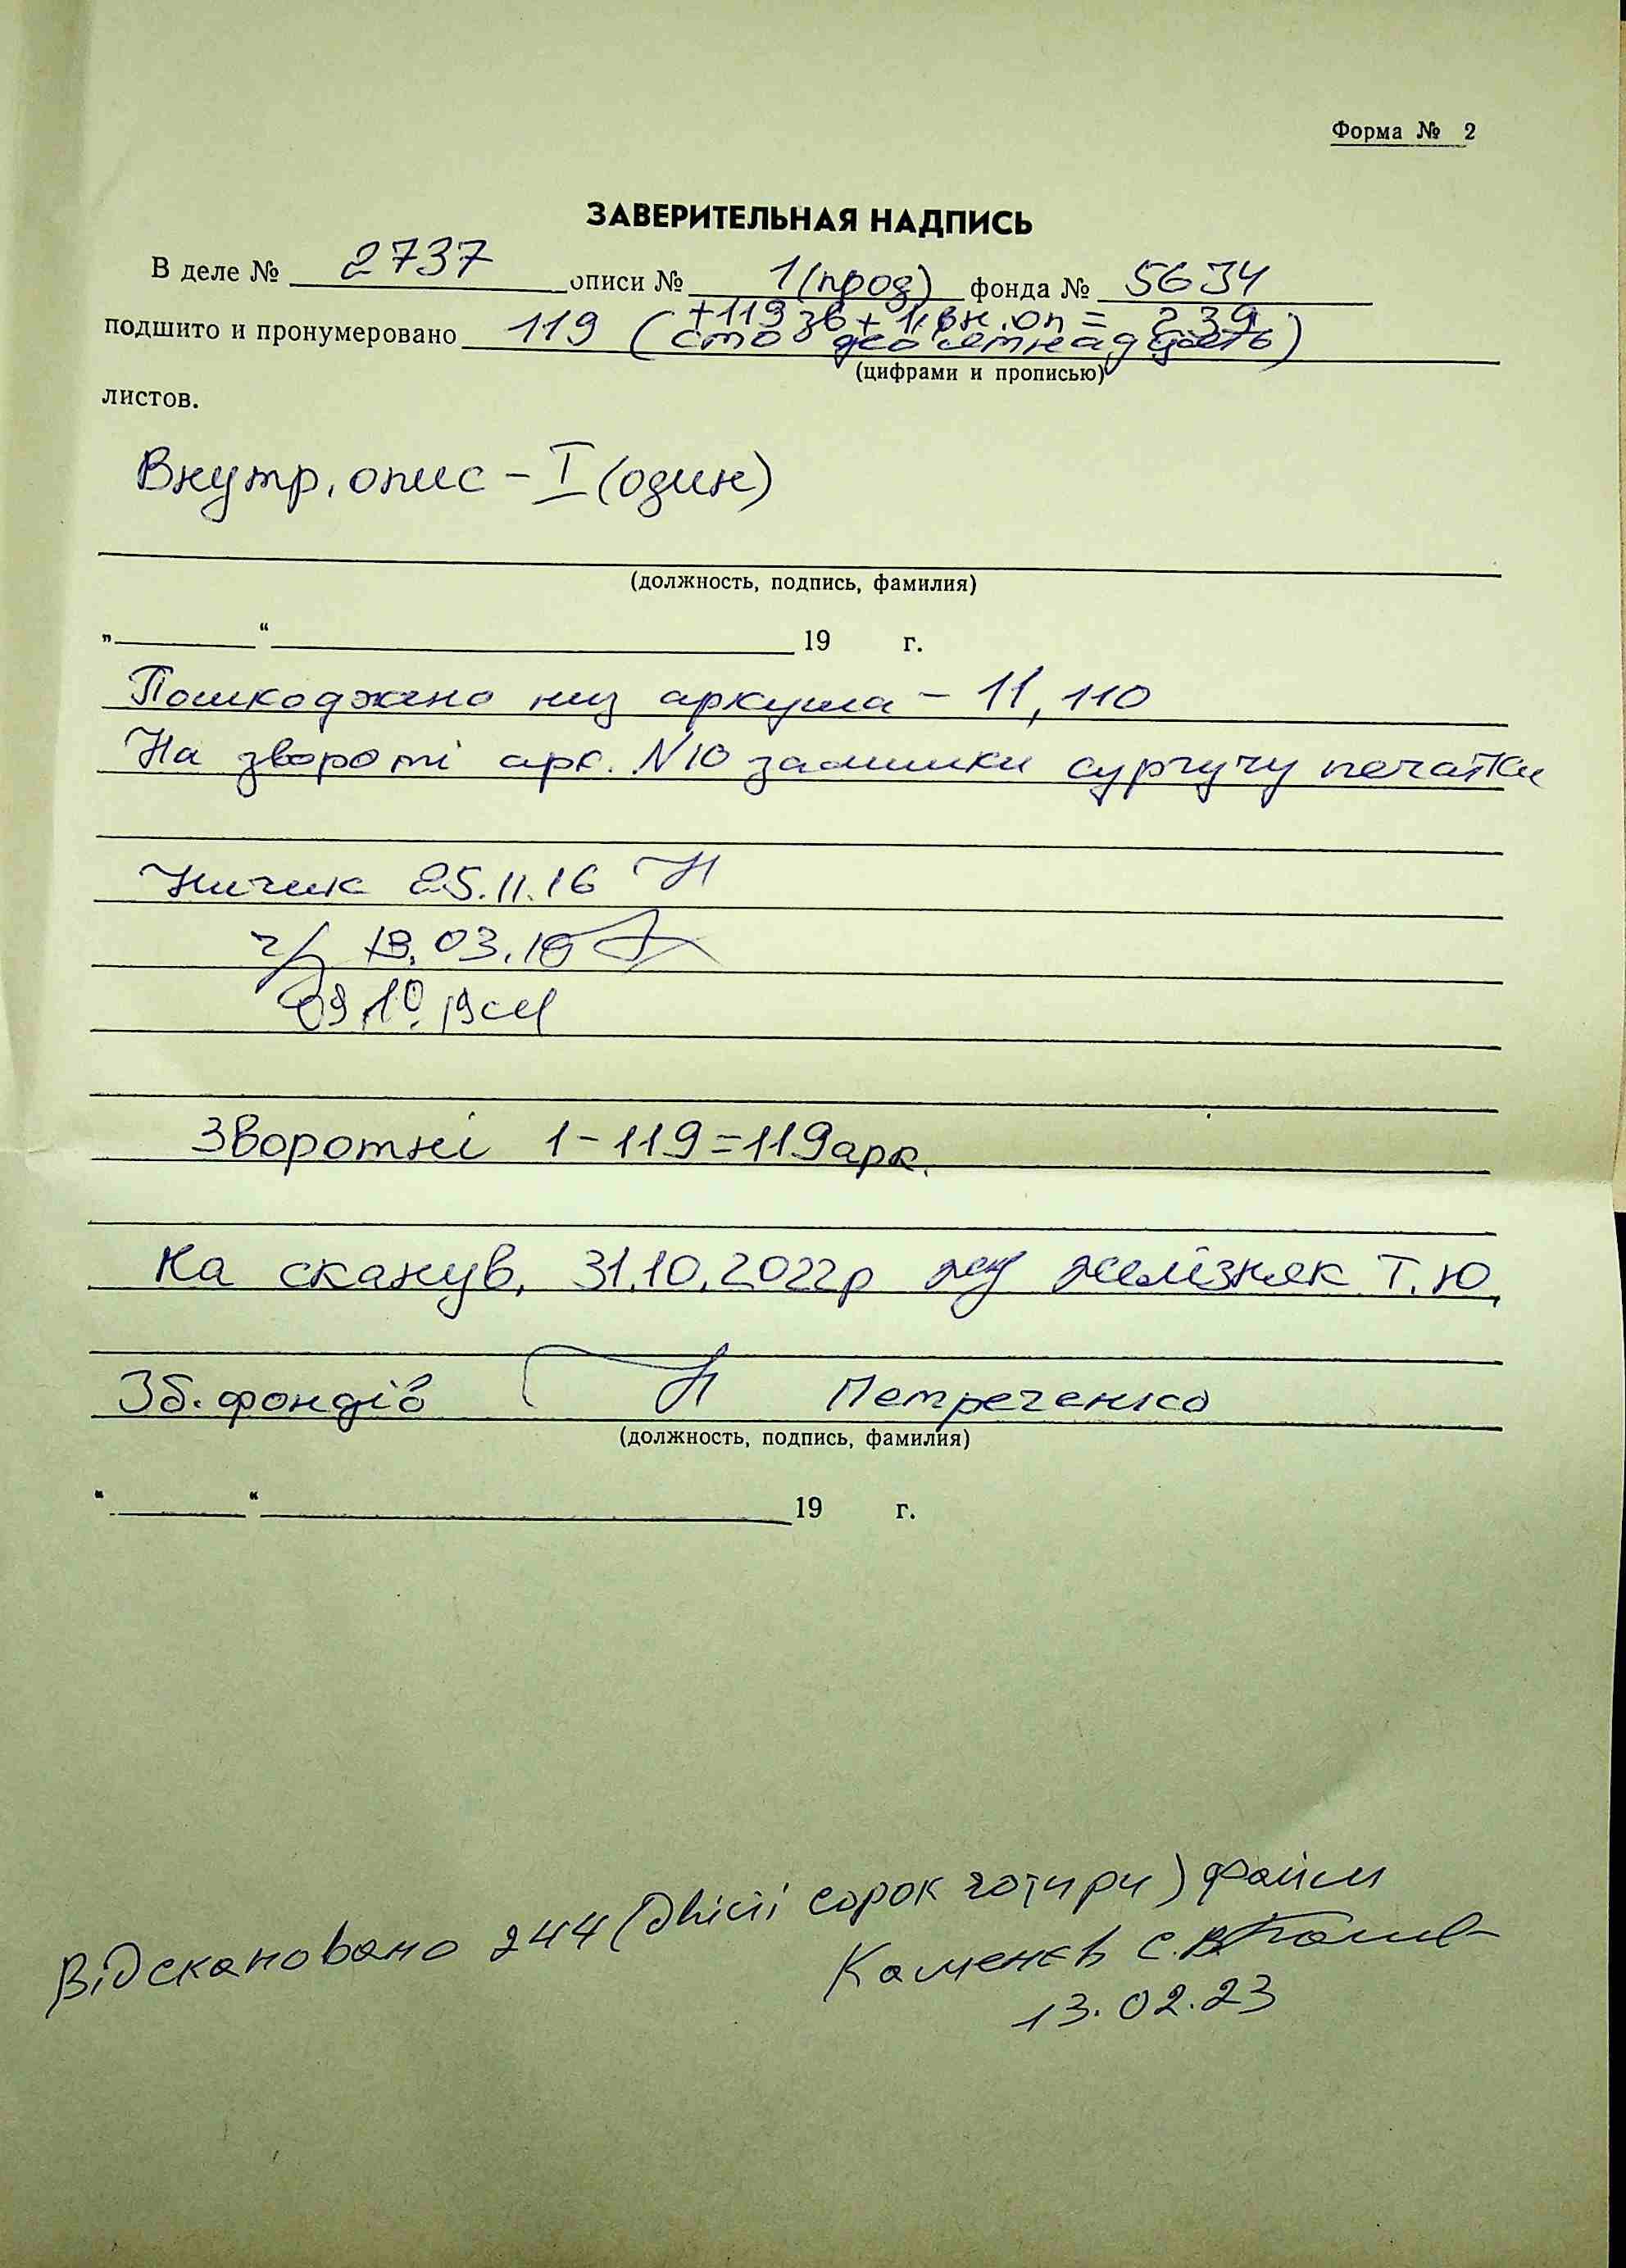 Форма № 2
ЗАВЕРИТЕЛЬНАЯ НАДПИСЬ
В деле № 2737 описи № 1(прод) фонда № 5634
+119 зв + 1 вн. оп = 239
подшито и пронумеровано 119 (сто дев'ятнадцять)
(цифрами и прописью)
листов.
Внутр. опис - I (один)
(должность, подпись, фамилия)
„ “ 19 г.
Пошкоджено низ аркуша - 11, 110
На звороті арк. N10 залишки сургучу печатки
Ничик 25.11.16
03.19
09.10.19
Зворотні 1-119=119арк.
На сканув. 31.10.2022р Желізняк Т.Ю.
Зб. фондів Петреченко
(должность, подпись, фамилия)
“ “ 19 г.
Відскановано 244 (двісті сорок чотири) файли
Каменєв С.В.
13.02.23